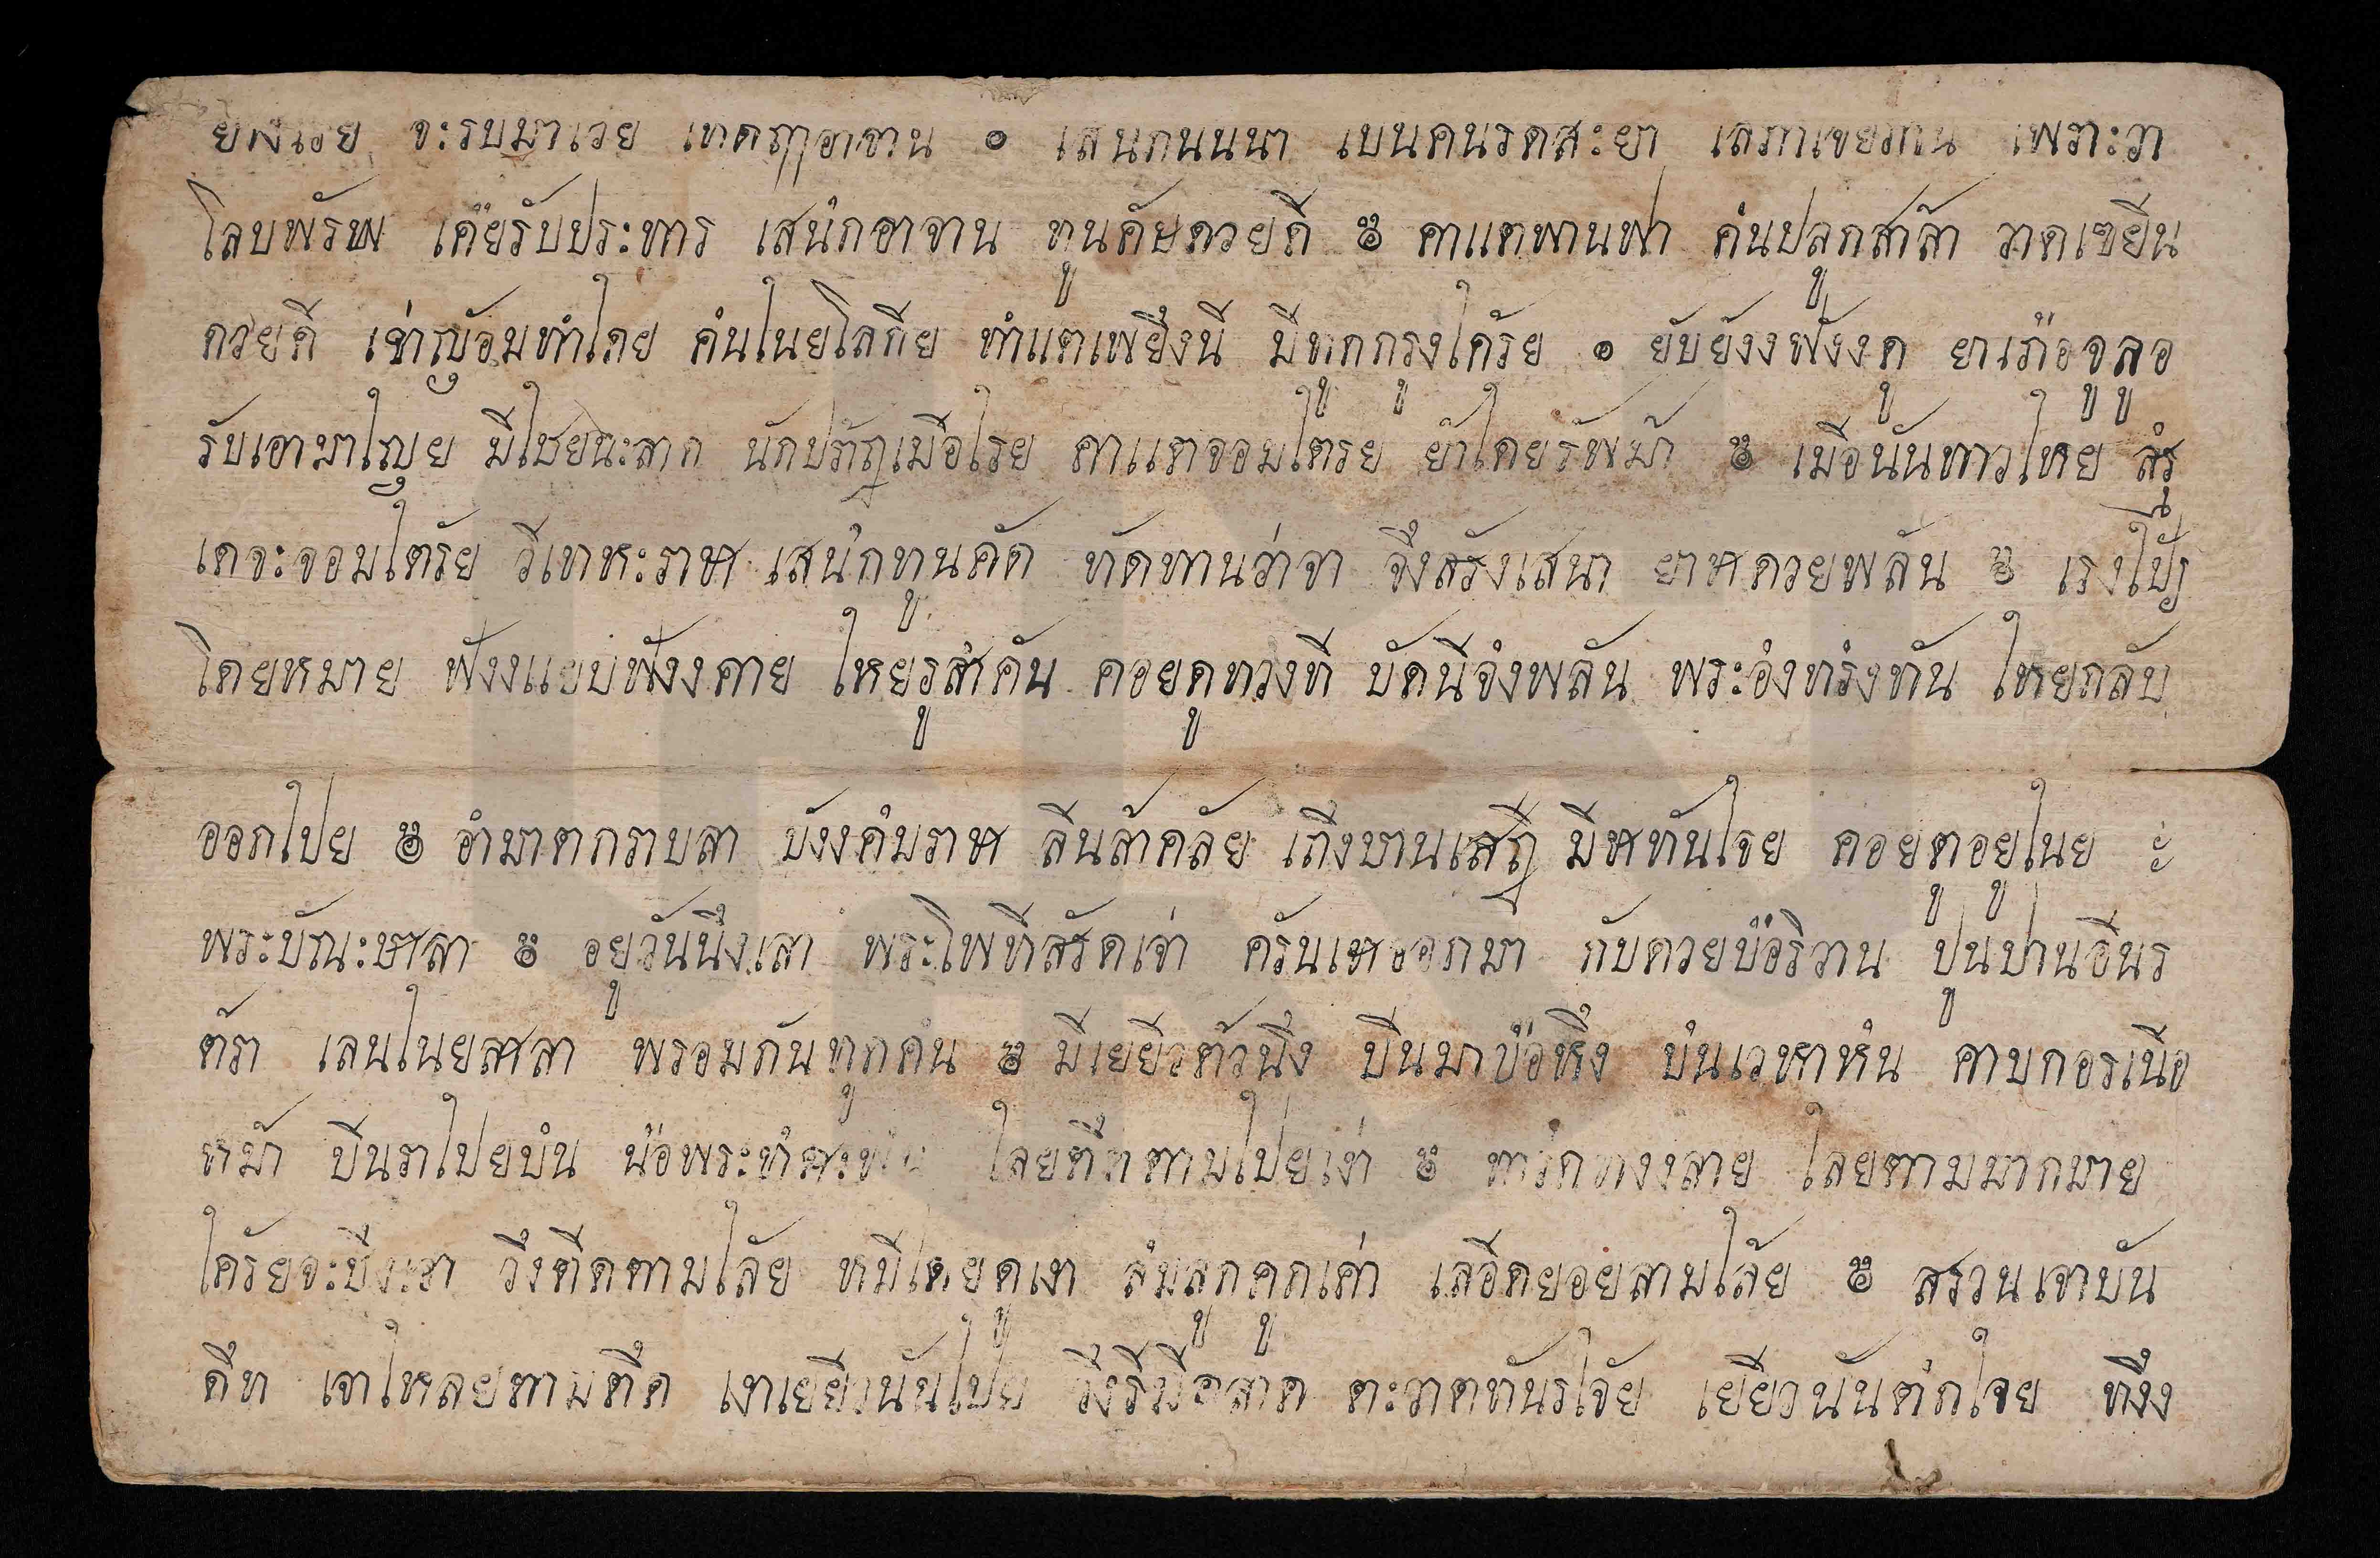 จะรบมาเวย ๏ เสนกนนนา เบนคนรดสะยา เพราะวา
โลบพรัพ เคียรับประทาร เสนํกอาจาน ทูนคัษดวยดี ๏ คาแตพานฟา คํนปลูกสาลา วาดเซยีน
ดวยดี เข่าญ้อมทำไดย คํนไนยโลกีย ทำแตเพยีงนี มีทูกกรูงไค้รย ๏ ยับยังงฟังงดู
รับเอามาไญย มีไชยนะสาด นักปร้าฎเมือไรย คาแตจอมไตรย ย้าไดยร้พม้า ๏ เมือนันทาวไหย สํรุ
เดจะจอมไตรัย วีเทหะราช เสนํกทูนคัด ทัดทานว่าจา จึงสรังเสนา ยาชดวยพลัน ๏
โดยหมาย ฟังงแยบฟังงคาย ไหยรูสำคัน คอยดูทวงที บัดนีจํงพลัน พระอํงทรํงทัน ไหยกลับ
ออกไปย ๏ อำมาตกราบลา บังงคํมราช ลีนล้าคลัย เถีงบานเสฎี มีหทันไจย คอยดูอยูไนย
พระบัณะษาลา ๏ อยูวันนึงเลา พระโพทีสรัดเจ่า ครันเหออกมา กับดวยบ๋อริวาน ปูนปานอีนร
ต้รา เลนไนยสาลา พรอมกันทูกคํน ๏ มีเยยีวต้วนึ่ง บีนมาบ๋อหึ่ง บํนเวหาหํน คาบกอรเนือ
หม้า บีนราไปยบํน น๋อพระทํ ไลยตีดตามไปยเงา ๏ ไลยตามมากมาย
ไคร้ยจะบี วึ่งตีดตามไลัย หมีไดยดูเงา ลํมลูกคูกเค่า เลอืดยอยสามไล้ย ๏ สรวนเจาบัน
ดีท เจาไหลยตามตีด เงาเยยีวนันไปย วึ่งรี ตะวาดทันรไจัย เยยีวนันตํกไจย ทีงง